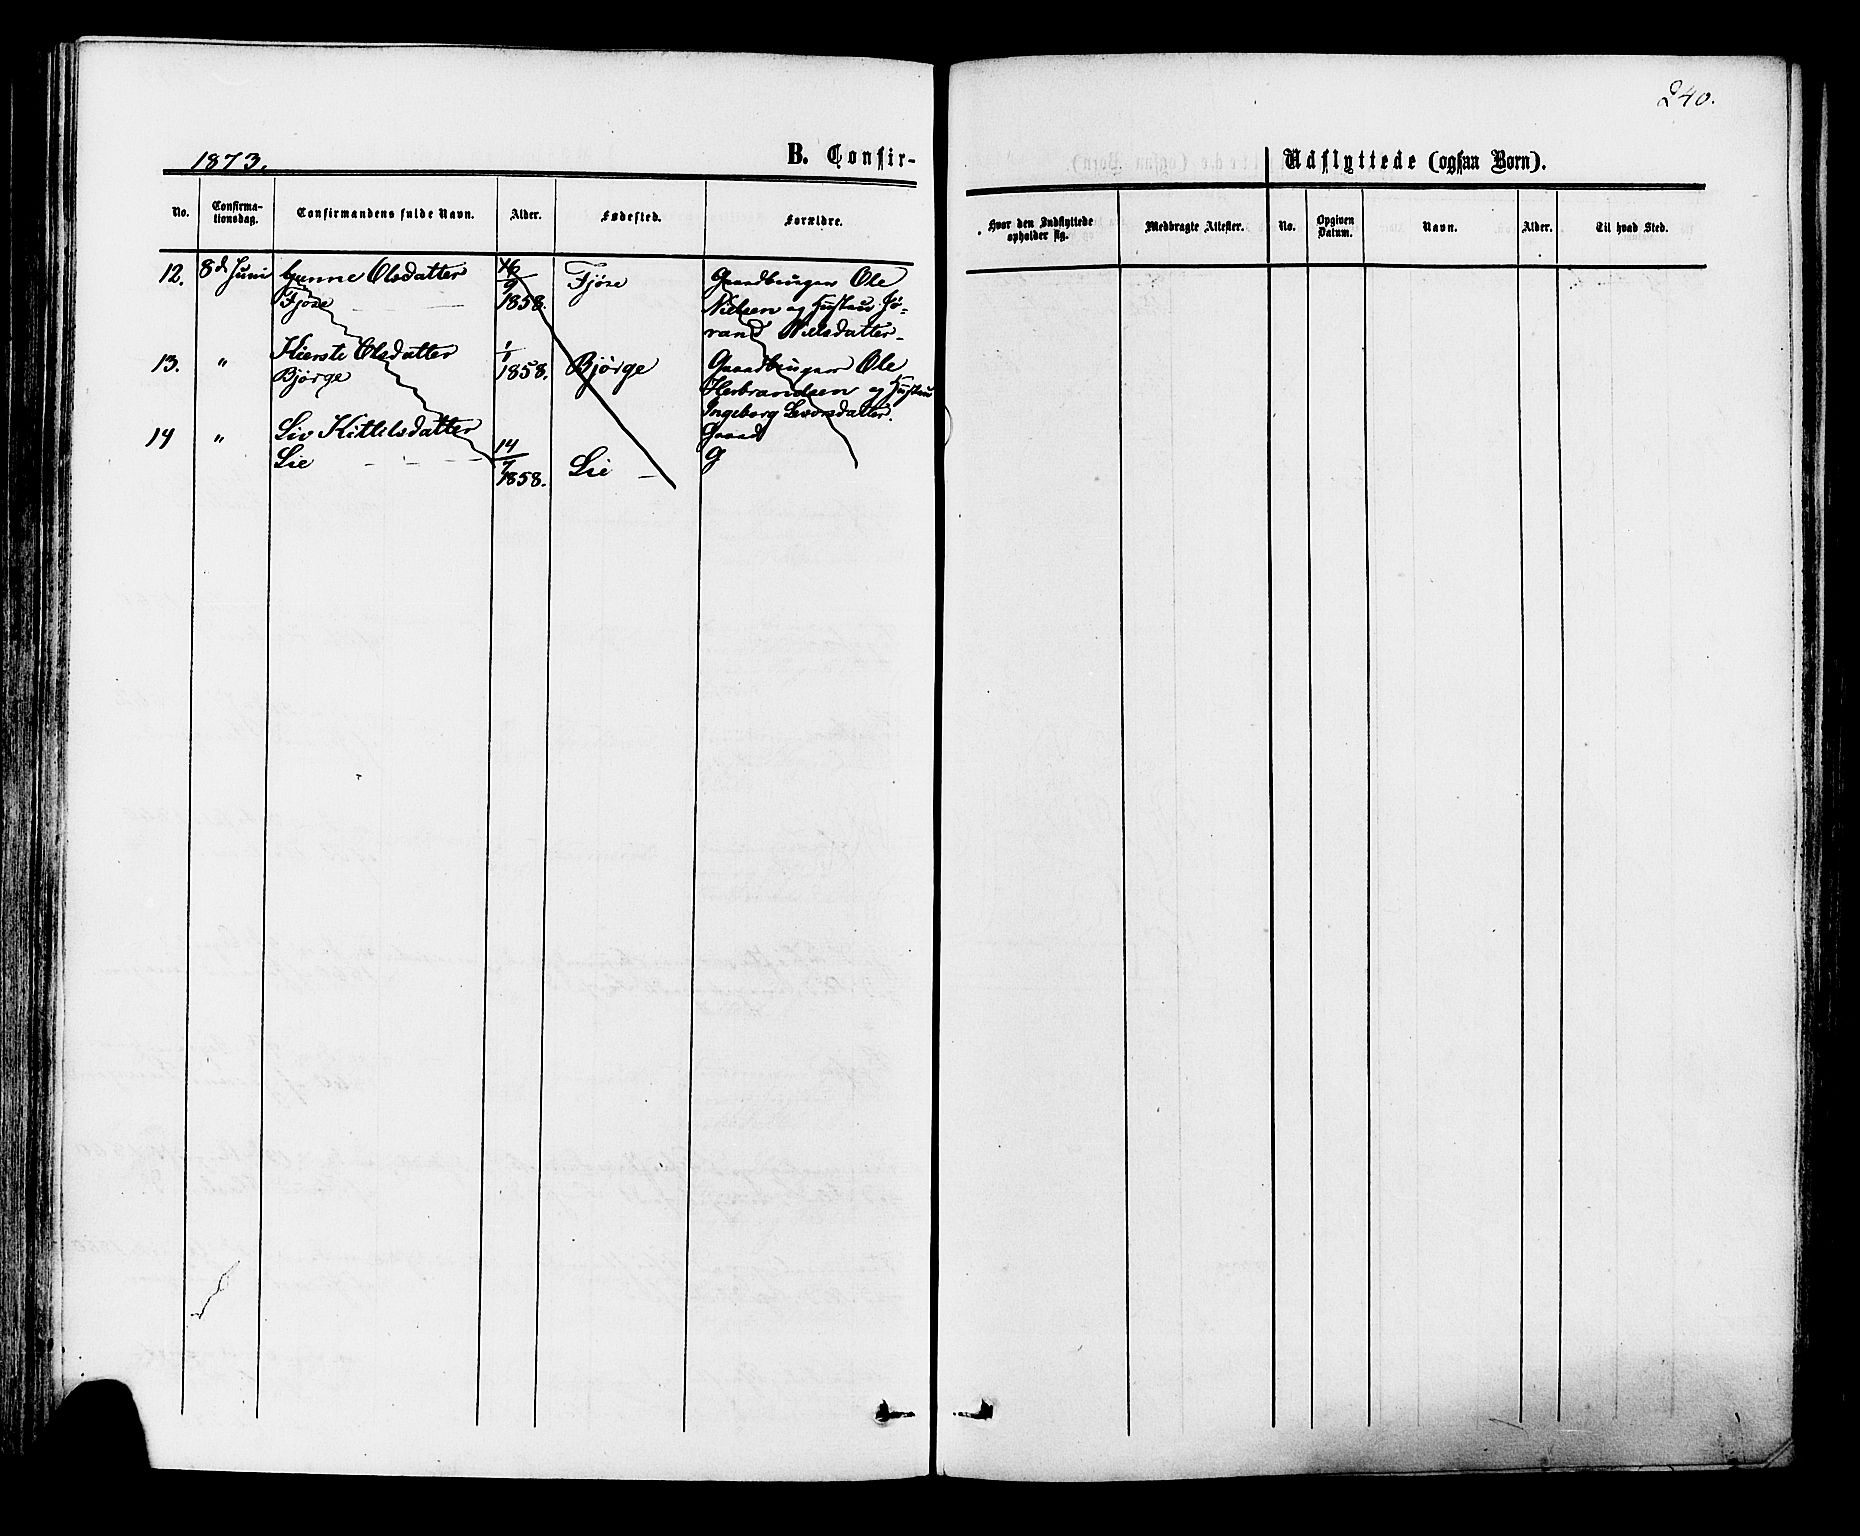 1873.
B. Confir-
No. Confirma-tionsdag. Confirmandens fulde Navn. Alder. Fødested. Forældre.
12. 8de Juni Gunne Olsdatter 16/9 Fjøse Gaardbruger Ole
Fjøse 1858. Nielsen og Hustru Jø-
rand Nielsdatter
13. " Kierste Olsdatter 1/1 Bjørge Gaardbruger Ole
Bjørge 1858. Herbrandsen og Hustru
Ingeborg Levorsdatter.
14 " Liv Kittilsdatter 14/7 Lie Gaard
Lie 1858. G
240.
Udflyttede (ogsaa Børn).
Hvor den Indflyttede opholder sig. Medbragte Attester. No. Opgiven Datum. Navn. Alder. Til hvad Sted.